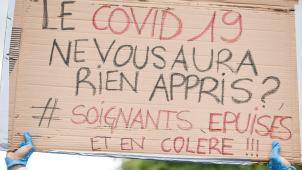 LE COVID 19
NE VOUS AURA
RIEN APPRIS ?
# SOIGNANTS EPUISÉS
ET EN COLÈRE !!!